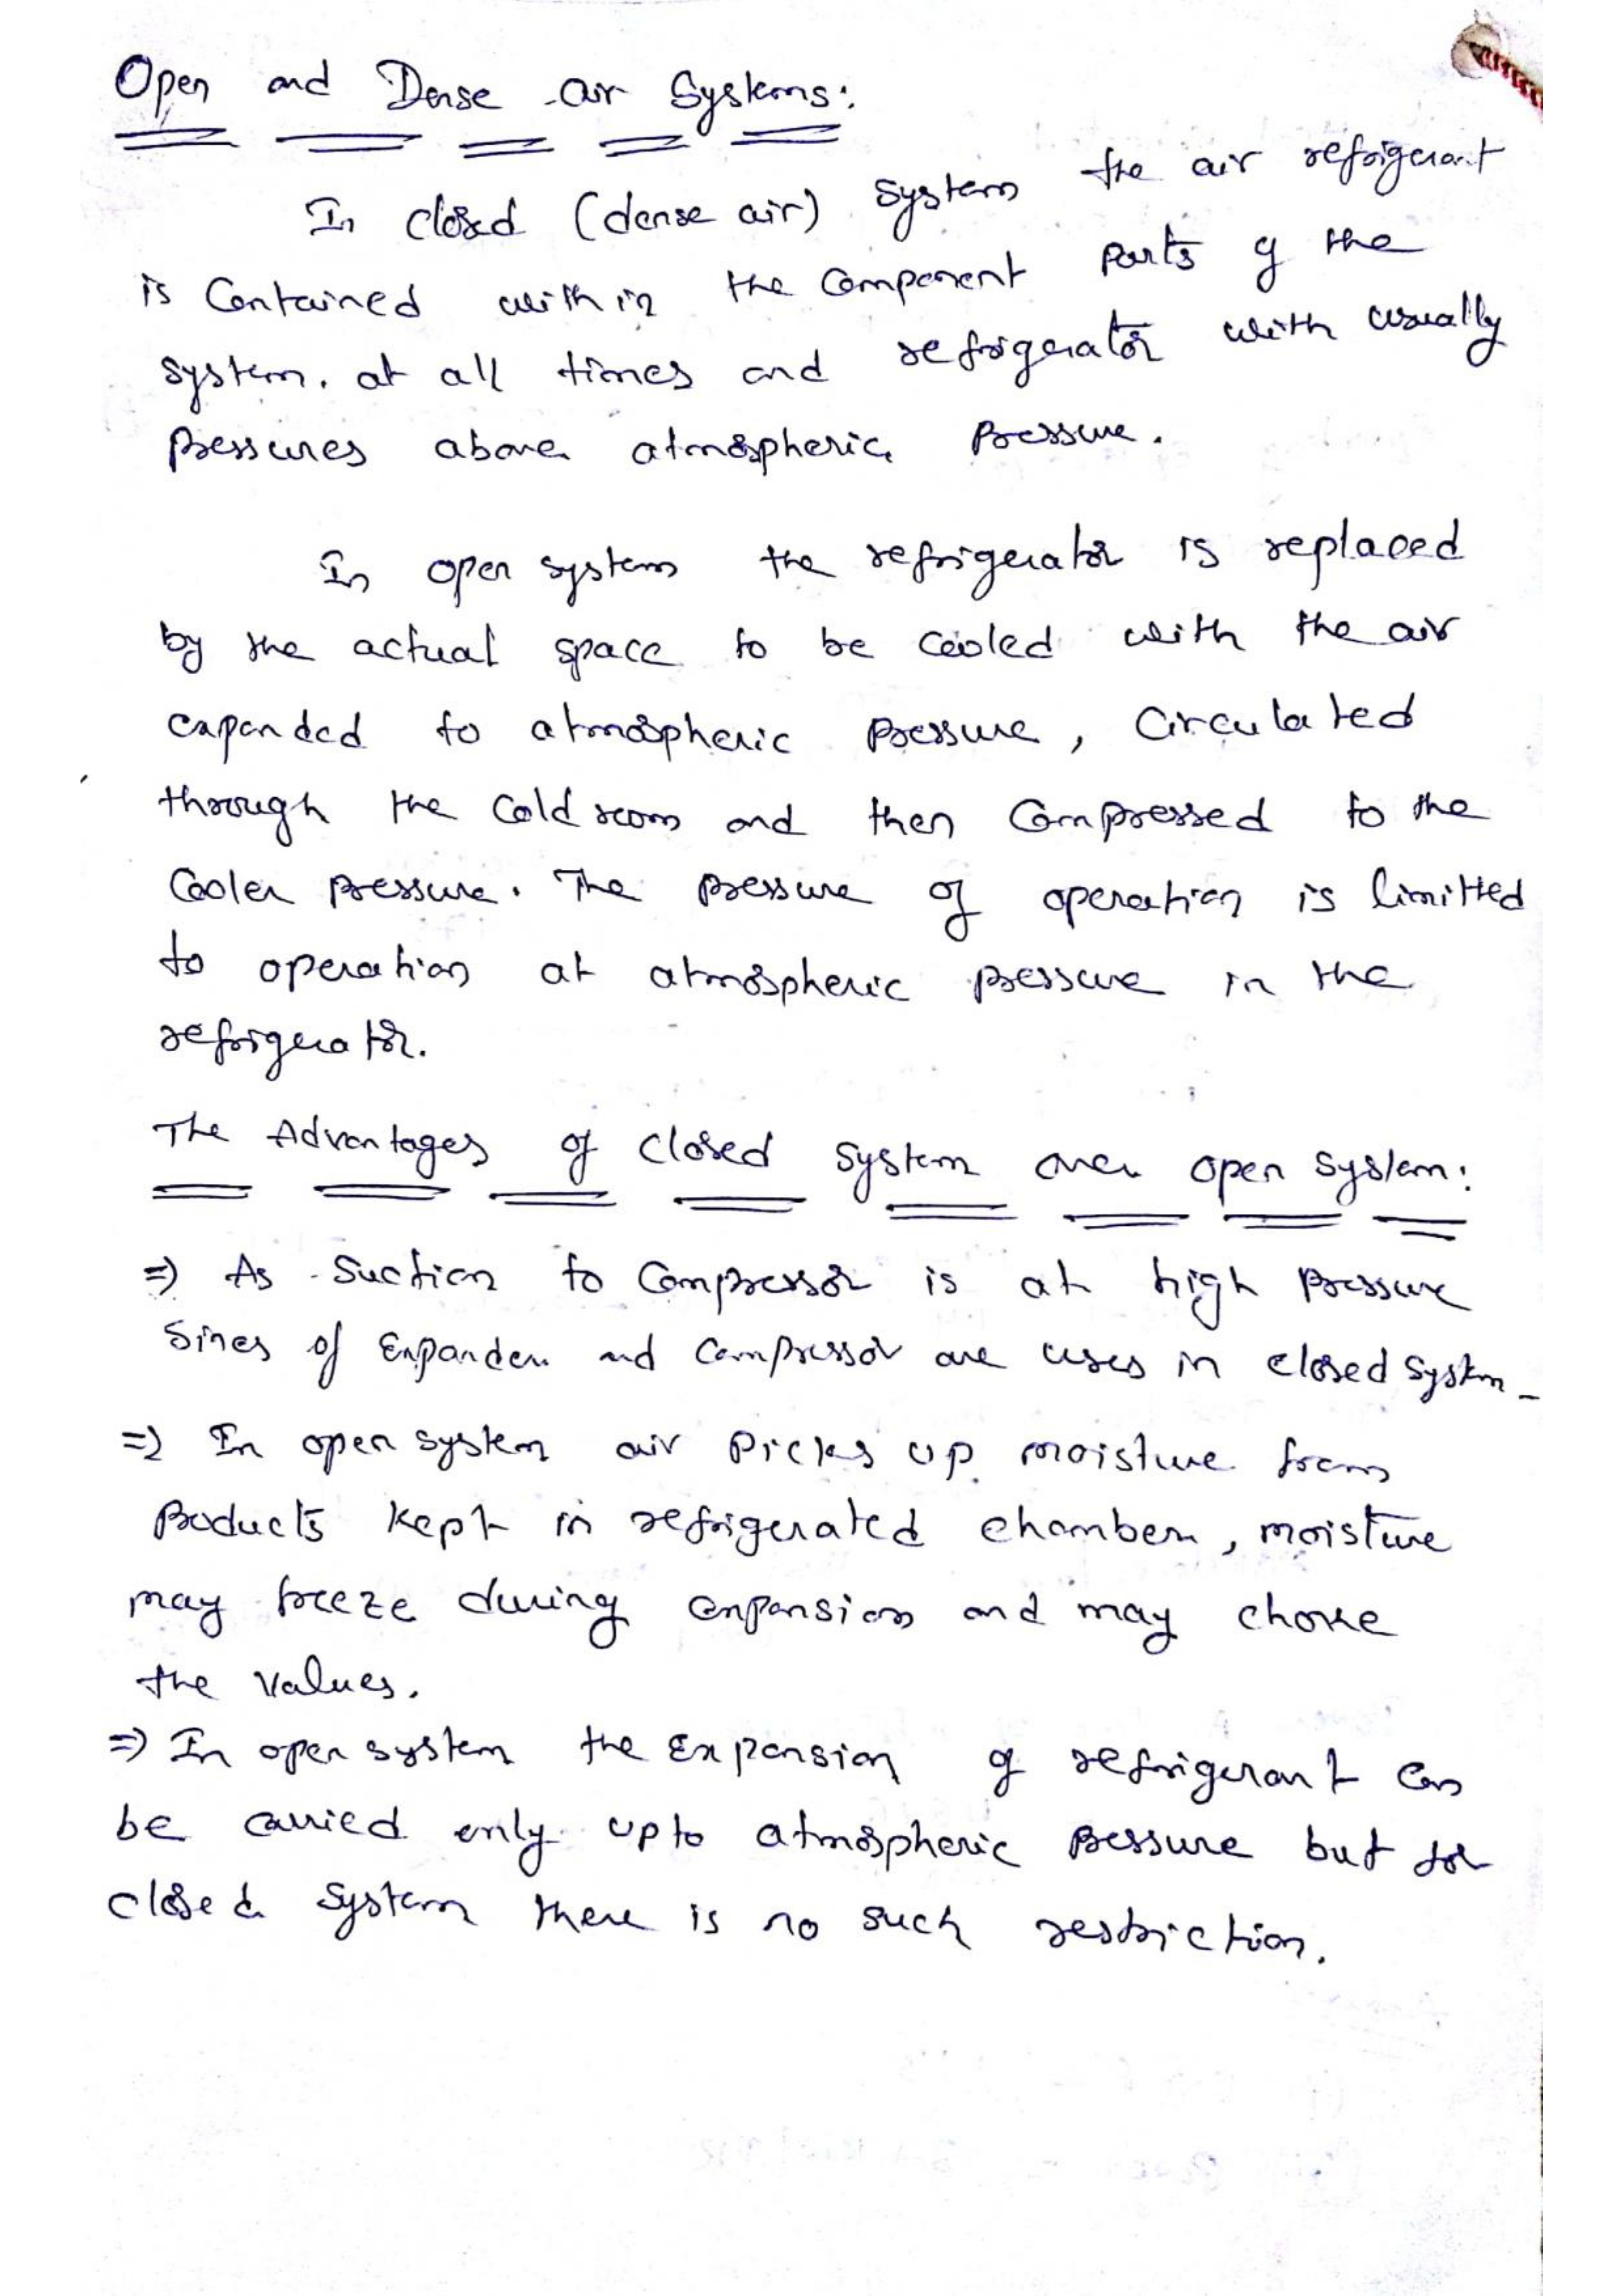 Open and Dense air Systems:
In closed (dense air) system the air refrigerant
is Contained within the Component parts of the
system. at all times and refrigerator with usually
pressures above atmospheric pressure.
In open system the refrigerator is replaced
by the actual space to be cooled with the air
expanded to atmospheric pressure, Circulated
through the Cold room and then Compressed to the
Cooler pressure. The pressure of operation is limitted
to operation at atmospheric pressure in the
refrigerator.
The Advantages of closed system over open system:
=) As Suction to Compressor is at high pressure
Sines of Expander and Compressor are uses in closed system -
=) In open system air picks up moisture from
products kept in refrigerated chamber, moisture
may freeze during expansion and may choke
the values.
=) In open system the Expansion of refrigerant can
be carried only upto atmospheric pressure but for
closed system there is no such restriction.